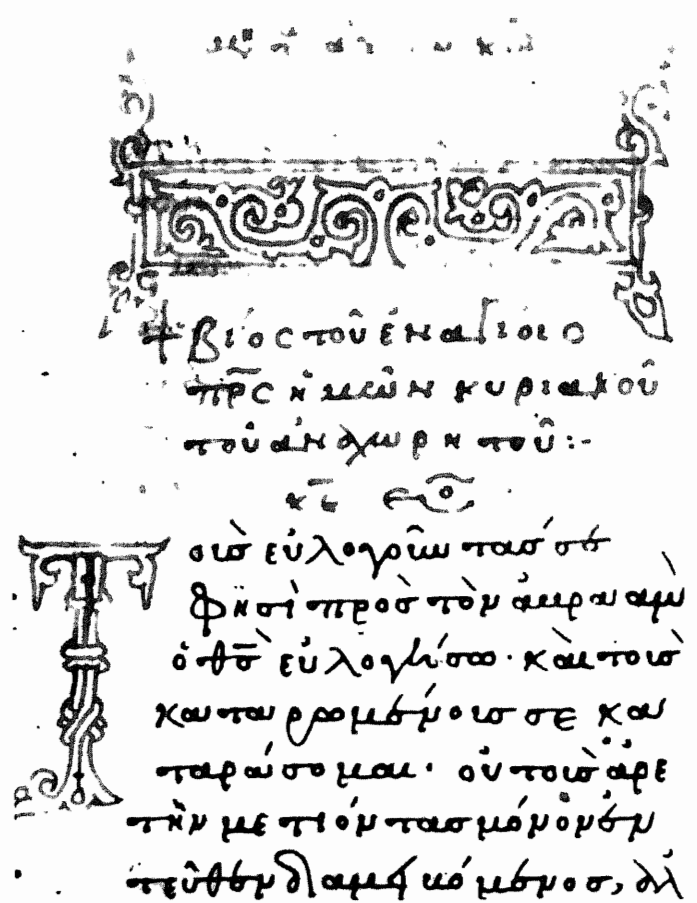 + βίος τοῦ ἐν ἁγίοις
πρς ἡμῶν κυριακοῦ
τοῦ ἀναχωρητοῦ:-
Τοὺς εὐλογοῦντας σε
φησὶ πρὸς τὸν ἀβραὰμ
ὁ θς εὐλογήσω· καὶ τοῖς
καταρωμένοις σε κα
ταράσομαι· οὐ τοὺς ἀρε
τὴν μετιόντας μόνον ἐν
τεῦθεν διαμειβόμενος, ἀλ